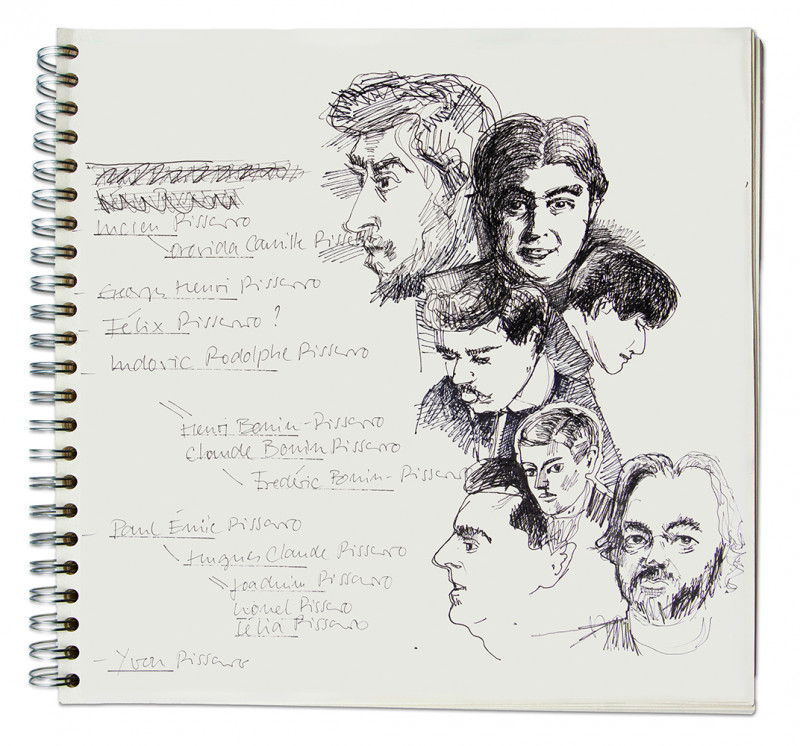 Lucien Pissarro
Orovida Camille Pissarro
Georges Henri Pissarro
Félix Pissarro?
Ludovic Rodolphe Pissarro
Henri Bonin-Pissarro
Claude Bonin Pissarro
Frédéric Bonin-Pissarro
Paul Émile Pissarro
Hugues Claude Pissarro
Joachim Pissarro
Lionel Pissarro
Lélia Pissarro
- Yvon Pissarro